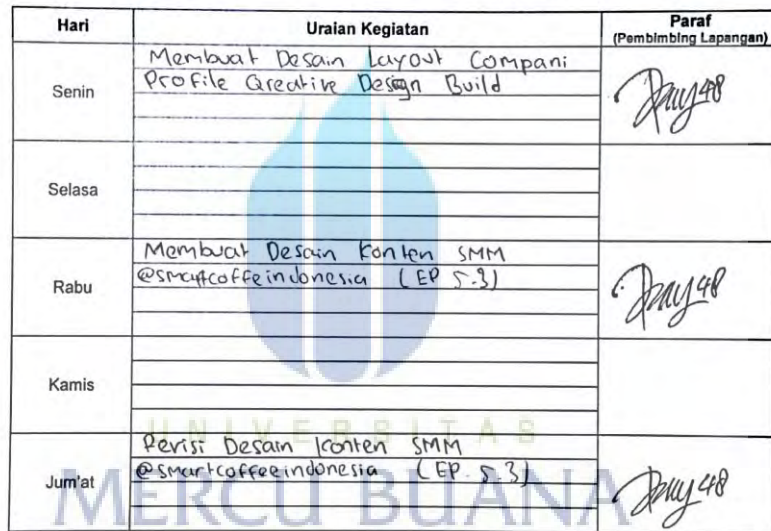 Hari Uraian Kegiatan Paraf
(Pembimbing Lapangan)
Senin
Membuat Desain Layout Compani
Profile Qreative Design Build
Selasa
Rabu
Membuat Desain Konten SMM
@smartcoffeindonesia (EP 5.3)
Kamis
UNIVERSITAS
Jum'at
Revisi Desain Konten SMM
@smartcoffeeindonesia (EP. 5.3)
MERCU BUANA